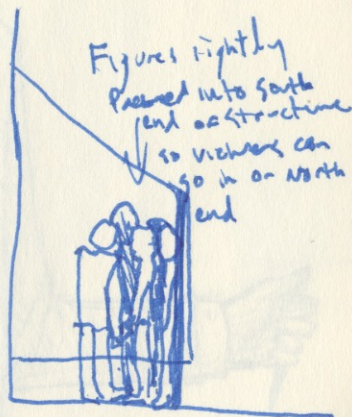 Figures tightly
pressed into south
end of structure
so viewers can
go in on north
end